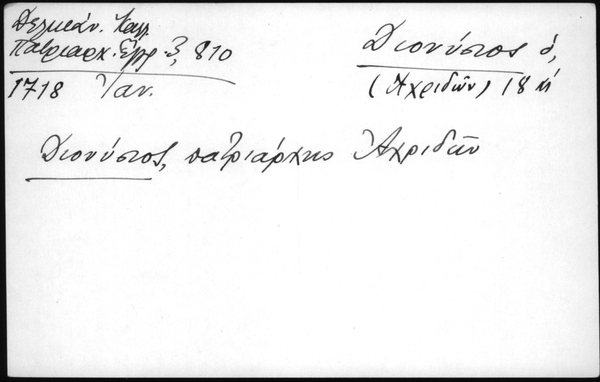 Δελικάν. Καλλ.
Πατριαρχ. Έγγρ. 3, 810
1718 Ιαν.
Διονύσιος ὁ,
(Ἀχριδῶν) 18 ή
Διονύσιος, πατριάρχης Ἀχριδῶν